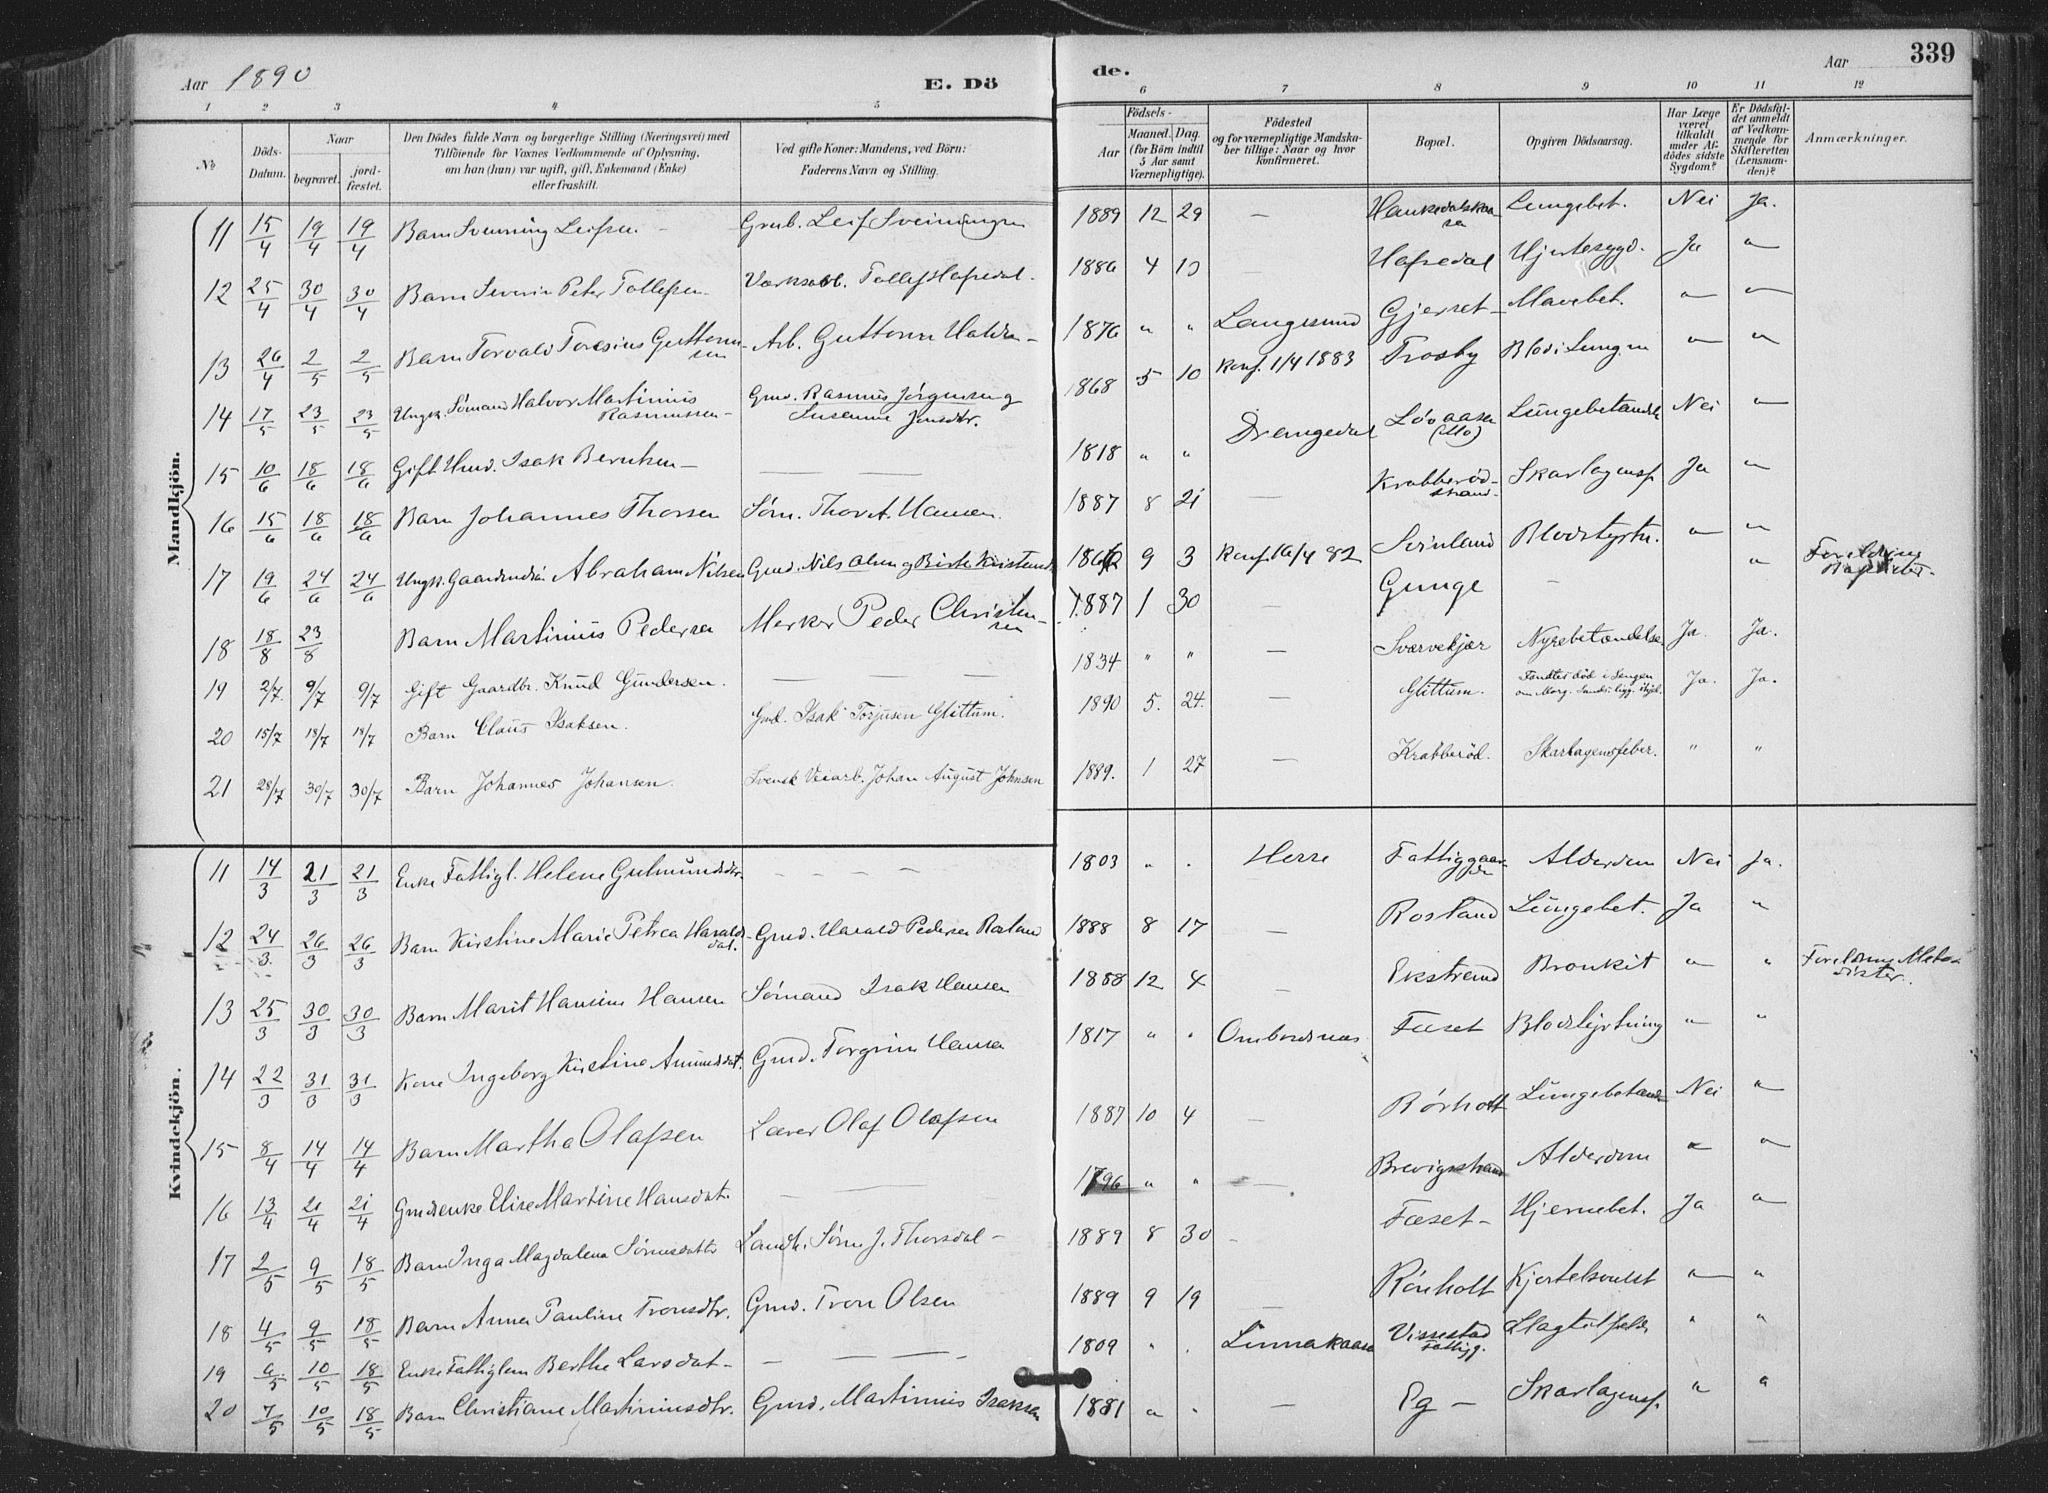 Aar 1890 E. Dö
de. Aar 339
1 2 3 4 5 6 7 8 9 10 11 12
No
Döds-Datum.
Naar
begravet.
jordfæstet.
Den Dödes fulde Navn og borgerlige Stilling (Næringsvei) med
Tilföiende for Voxnes Vedkommende af Oplysning,
om han (hun) var ugift, gift, Enkemand (Enke)
eller fraskilt.
Ved gifte Koner: Mandens, ved Börn:
Faderens Navn og Stilling.
Födsels-
Aar
Maaned. Dag.
(for Börn indtil
5 Aar samt
Værnepligtige).
Födested
og for værnepligtige Mandskaber tillige: Naar og hvor
konfirmeret.
Bopæl.
Opgiven Dödsaarsag.
Har Læge været tilkaldt under Afdödes sidste Sygdom?
Er Dödsfaldet anmeldt af Vedkommende for Skifteretten (Lensmanden)?
Anmærkninger.
Mandkjön.
11 15/4 19/4 19/4 Barn Svenning Leifsen. Grub. Leif Sveinungsen 1889 12 29 — Lungebet. Nei Ja.
12 25/4 30/4 30/4 Barn Severin Peter Tollefsen Tollef Hafredal. 1886 4 Hafredal Hjertesygd. Ja "
13 26/4 2/5 2/5 Barn Torvald Guttormsen Arb. Guttorm Halvorsen 1876 " " Langesund Gjerset Mavebet. " "
14 17/5 23/5 23/5 Ungk. Sömand Halvor Martinius Rasmussen Gmd. Rasmus Jörgensen og Susanne Jensdtr. 1868 5 10 Konf. 1/4 1883 Trosby Blod i Lungen " "
15 10/6 18/6 18/6 Gift Hmd. Isak Berntsen — 1818 " " Drangedal Lövaasen (Mo) Lungebetændelse Nei "
16 15/6 18/6 18/6 Barn Johannes Thorsen Söm. Thor A. Hansen. 1887 8 21 — Krabberødstrand. Skarlagensf. Ja "
17 19/6 24/6 24/6 Ungk. Gaardmdsön Abraham Nilsen Gmd. Nils Olsen og Birte Kristensdt 9 3 Konf. 16/4 82 Blodstyrtn. " "
18 18/8 23/8 Barn Martinius Pedersen Merker Peder Christensen 1887 1 30 — Gunge — " Forældrene Baptister.
19 2/7. 9/7 9/7 Gift Gaardbr. Knud Gundersen. — 1834 " " — Sværvekjær Nyrebetændelse Ja. Ja.
20 15/7 18/7 18/7 Barn Claus Isaksen. Gmd. Isak Torjusen Glittum. 1890 5. 24. — Glittum. Fandtes död i Sengen om Morg. Ja. Ja.
21 28/7 30/7 30/7 Barn Johannes Johansen. Svensk Veiarb. Johan August Johnsen 1889. 1 27 — Krabberöd. Skarlagensfeber. " "
Kvindekjön.
11 14/3 21/3 21/3 Enke Fattigl. Helene Gutmundsdtr — 1803 " . Herre Fattiggaarden Alderdom Nei Ja.
12 24/3 26/3 26/3 Barn Kirstine Marie Petrea Haraldsdat. Gmd. Harald Pedersen Rosland 1888 8 17 — Rosland Lungebet. Ja "
13 25/3 30/3 30/3 Barn Marit Hansine Hansen Sömand Isak Hansen 1888 12 4 — Ekstrand Bronkit " " Forældrene Metodister.
14 22/3 31/3 31/3 Kone Ingeborg Kirstine Amundsdat. Gmd. Torgrim Hansen 1817 " " Ombordsnæs Faset Blodstyrtning " "
15 8/4 14/4 14/4 Barn Martha Olafsen Lærer Olaf Olafsen 1887 10 4 — Rörholt Lungebetænd. Nei "
16 13/4 21/4 21/4 Gmdsenke Elise Martine Hansdat. — 1796 " " — Brevigsstrand Alderdom " "
17 2/5 9/5 18/5 Barn Inga Magdalena Sörensdatter Landh. Sören J. Thorsdal — 1889 8 30 — Faset Hjernebet. Ja "
18 4/5 9/5 18/5 Barn Anna Pauline Tronsdtr. Gmd. Tron Olsen 1889 9 19 — Rörholt Kjertelsvulst " "
19 6/5 10/5 18/5 Enke Fattiglem Berthe Larsdat — 1809 " . Linnakaasa Vissestad Fattigg. Slagtilfælde " "
20 7/5 10/5 18/5 Barn Christiane Martiniusdtr. Gmd. Martinius Isaksen 1881 " " — Eg — Skarlagensf. " "